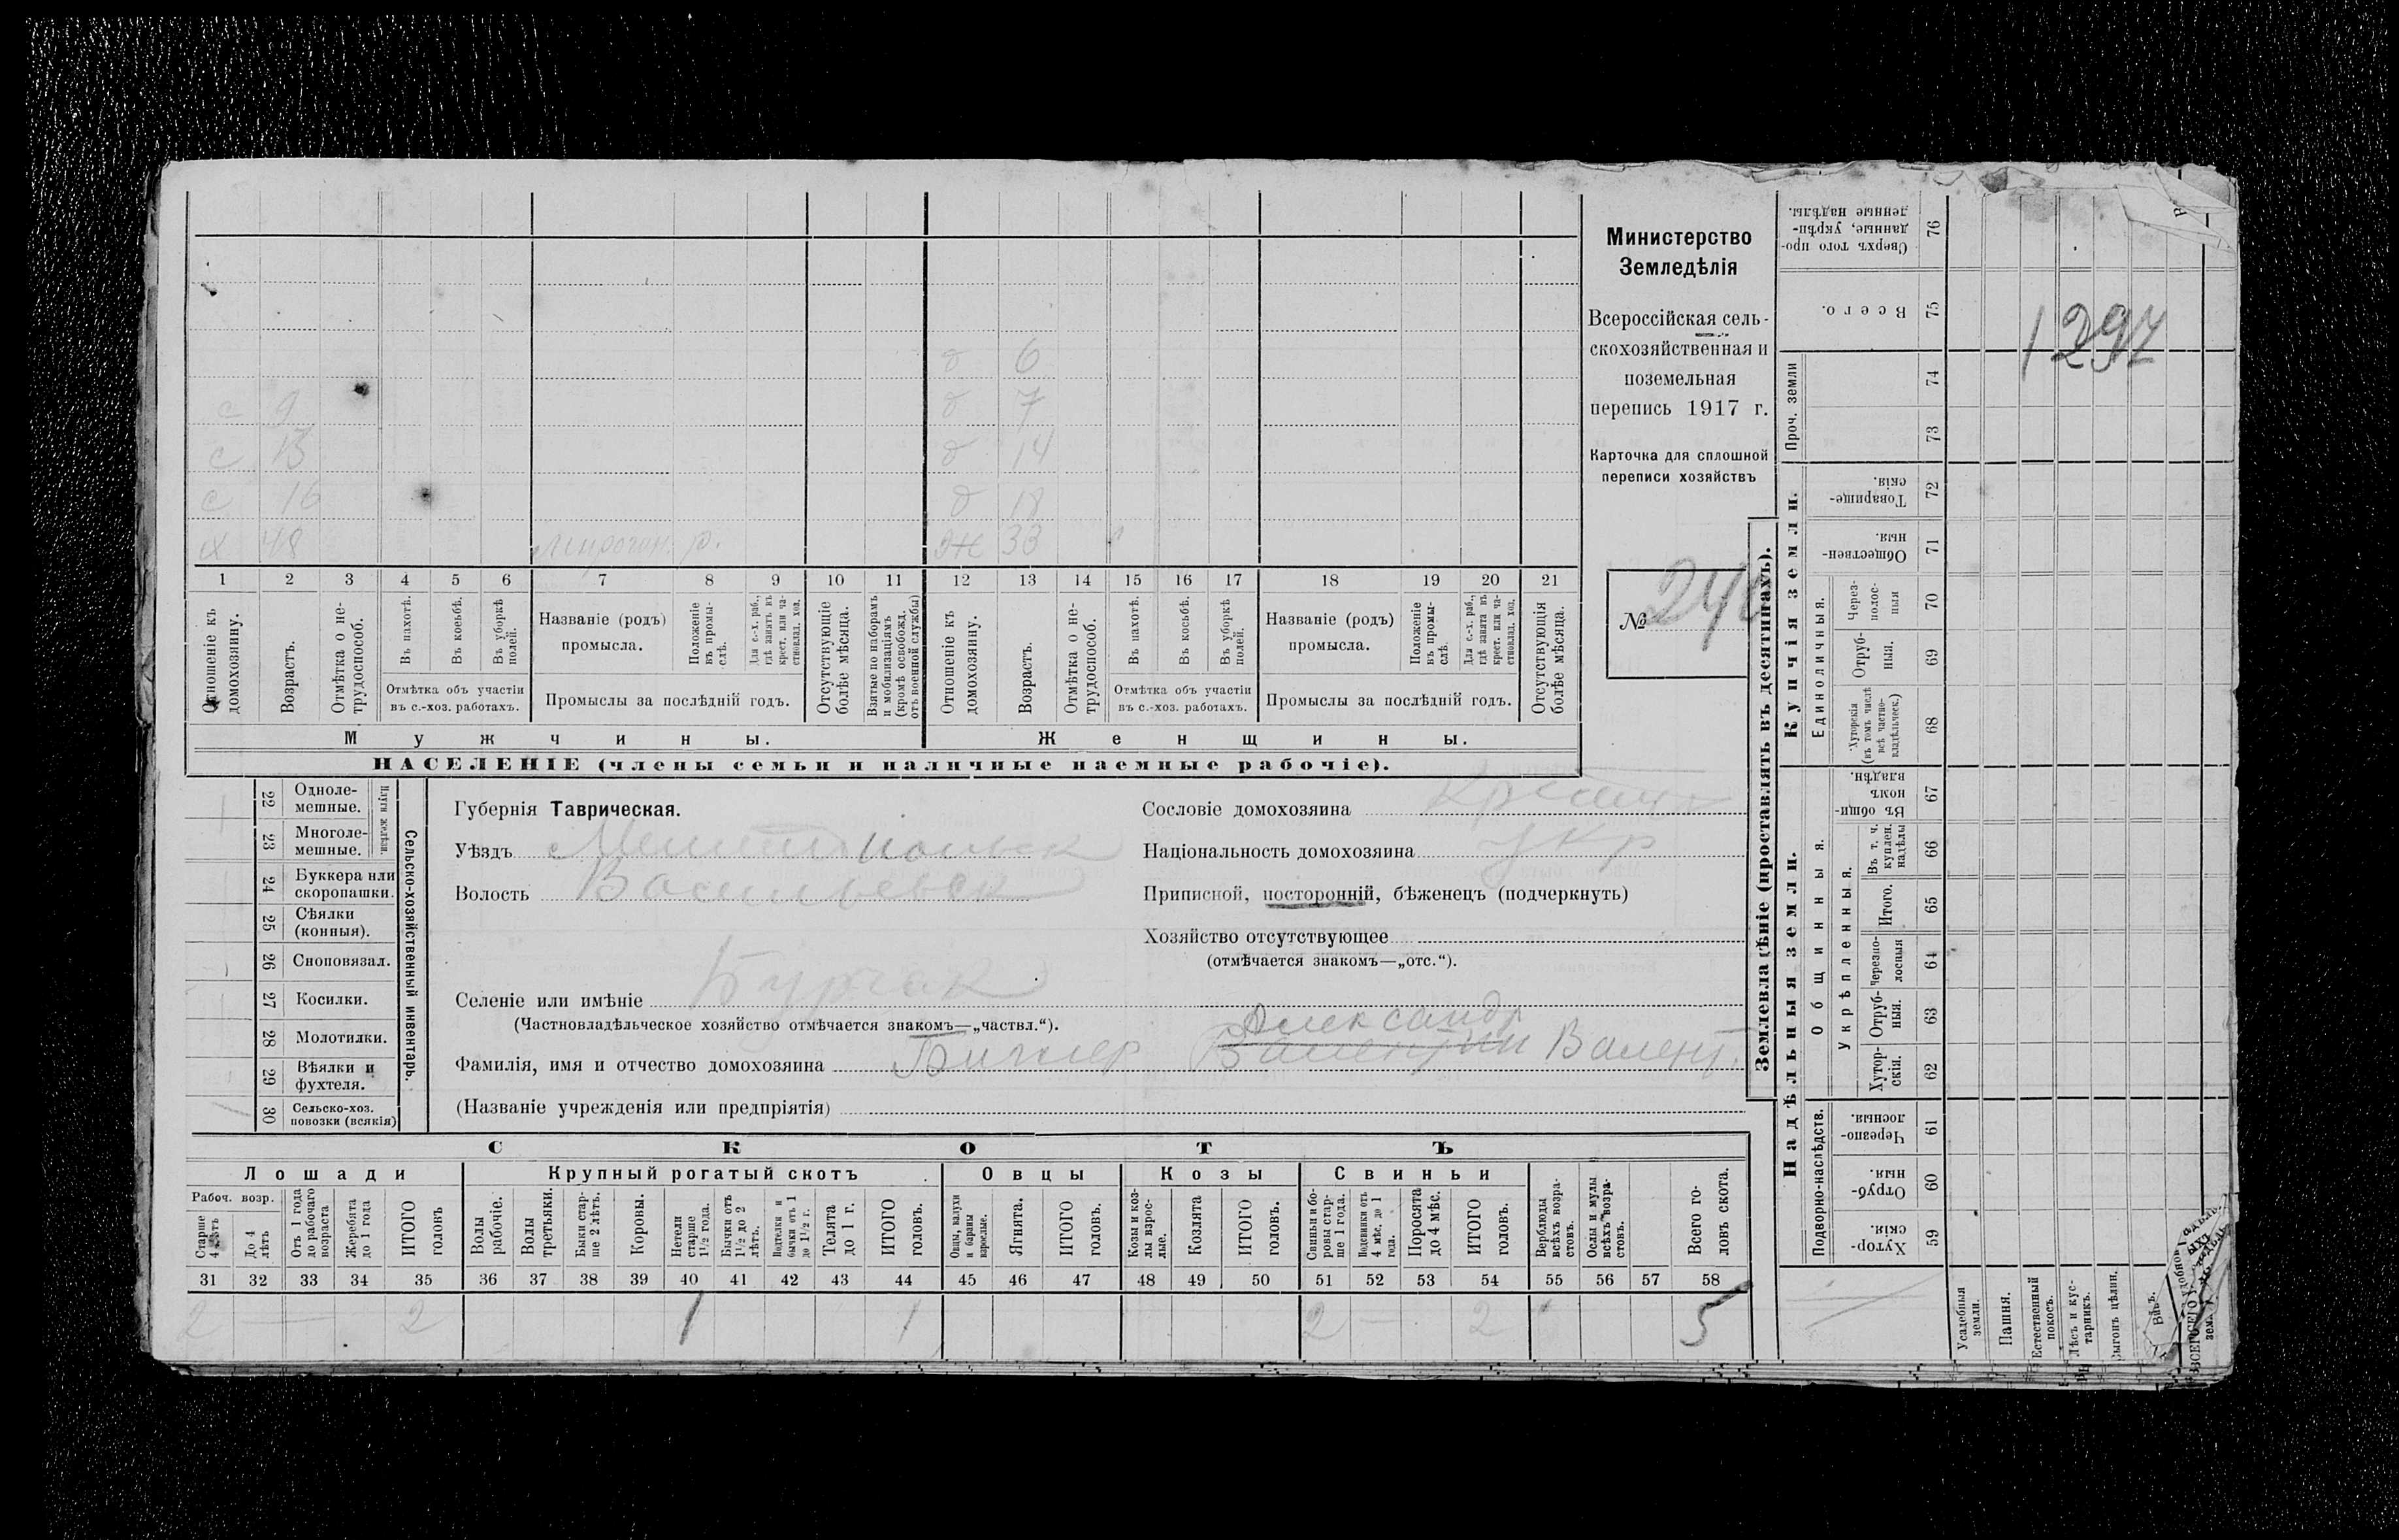 с 9
с 13
с 16
х 48
р.
д 6
д 7
д 14
д 18
ж 33
1 2 3 4 5 6 7 8 9 10 11 12 13 14 15 16 17 18 19 20 21
Отношеніе къ домохозяину.
Возрастъ.
Отмѣтка о не-
трудоспособ.
Въ пахотѣ.
Въ косьбѣ.
Въ уборкѣ
полей.
Отмѣтка объ участіи
въ с.-хоз. работахъ.
Названіе (родъ)
промысла.
Положеніе
въ промы-
слѣ.
Для с.-х. раб.,
гдѣ занятъ въ
крест. или ча-
стновлад. хоз.
Промыслы за послѣдній годъ.
Отсутствующіе
болѣе мѣсяца.
Взятые по наборамъ
и мобилизаціямъ
(кромѣ освобожд.
отъ военной службы)
Отношеніе къ
домохозяину.
Возрастъ.
Отмѣтка о не-
трудоспособ.
Въ пахотѣ.
Въ косьбѣ.
Въ уборкѣ
полей.
Отмѣтка объ участіи
въ с.-хоз. работахъ.
Названіе (родъ)
промысла.
Положеніе
въ промы-
слѣ.
Для с.-х. раб.,
гдѣ занята въ
крест. или ча-
стновлад. хоз.
Промыслы за послѣдній годъ.
Отсутствующія
болѣе мѣсяца.
Мужчины.
Женщины.
НАСЕЛЕНІЕ (члены семьи и наличные наемные рабочіе).
Министерство
Земледѣлія
Всероссійская сель-
скохозяйственная и
поземельная
перепись 1917 г.
Карточка для сплошной
переписи хозяйствъ
№ 240
22 Одноле-
мешные.
23 Многоле-
мешные.
Плуги желѣзн.
24 Буккера или
скоропашки.
25 Сѣялки
(конныя).
26 Сноповязал.
27 Косилки.
28 Молотилки.
29 Вѣялки и
фухтеля.
30 Сельско-хоз.
повозки (всякія)
Сельско-хозяйственный инвентарь.
Губернія Таврическая.
Уѣздъ Мелитопольск
Волость Васильевск
Селеніе или имѣніе Бурчак
(Частновладѣльческое хозяйство отмѣчается знакомъ—„частвл.“).
Фамилія, имя и отчество домохозяина Биглер Валентин Александр Валент.
(Названіе учрежденія или предпріятія)
Сословіе домохозяина
Національность домохозяина укр
Приписной, посторонній, бѣженецъ (подчеркнуть)
Хозяйство отсутствующее
(отмѣчается знакомъ—„отс.“).
СКОТЪ
Лошади
Крупный рогатый скотъ
Овцы
Козы
Свиньи
Рабоч. возр.
Старше
4 лѣтъ
До 4
лѣтъ
Отъ 1 года
до рабочаго
возраста
Жеребята
до 1 года
ИТОГО
головъ
Волы
рабочіе.
Волы
третьяки.
Быки стар-
ше 2 лѣтъ.
Коровы.
Нетели
старше
1½ года.
Бычки отъ
1½ до 2
лѣтъ.
Подтелки и
бычки отъ 1
до 1½ г.
Телята
до 1 г.
ИТОГО
головъ.
Овцы, валухи
и бараны
взрослые.
Ягнята.
ИТОГО
головъ.
Козы и коз-
лы взрос-
лые.
Козлята
ИТОГО
головъ.
Свиньи и бо-
ровы стар-
ше 1 года.
Подсвинки отъ
4 мѣс. до 1
года.
Поросята
до 4 мѣс.
ИТОГО
головъ.
Верблюды
всѣхъ возра-
стовъ.
Ослы и мулы
всѣхъ возра-
стовъ.
Всего го-
ловъ скота.
31 32 33 34 35 36 37 38 39 40 41 42 43 44 45 46 47 48 49 50 51 52 53 54 55 56 57 58
2 — 2 1 1 2 — 2 5
Землевладѣніе (проставлять въ десятинахъ).
Купчія земли.
Надѣльныя земли.
Сверхъ того про-
данные, укрѣп-
ленные надѣлы.
76
Всего.
75
Проч. земли
74
73
Товарище-
скія.
72
Обществен-
ныя.
71
Единоличныя.
Через-
полос-
ныя
70
Отруб-
ныя.
69
Хуторскія
(въ томъ числѣ
всѣ частно-
владѣльческ.)
68
Общинныя.
Въ общи-
номъ
владѣн.
67
Укрѣпленныя.
Въ т. ч.
куплен.
надѣлы
66
Итого.
65
Черезпо-
лосныя
64
Отруб-
ныя.
63
Хутор-
скія.
62
Подворно-наслѣдств.
Черезпо-
лосныя.
61
Отруб-
ныя.
60
Хутор-
скія.
59
1297
Усадебныя
земли.
Пашня.
Естественный
покосъ.
Лѣсъ и кус-
тарникъ.
Выгонъ цѣлин.